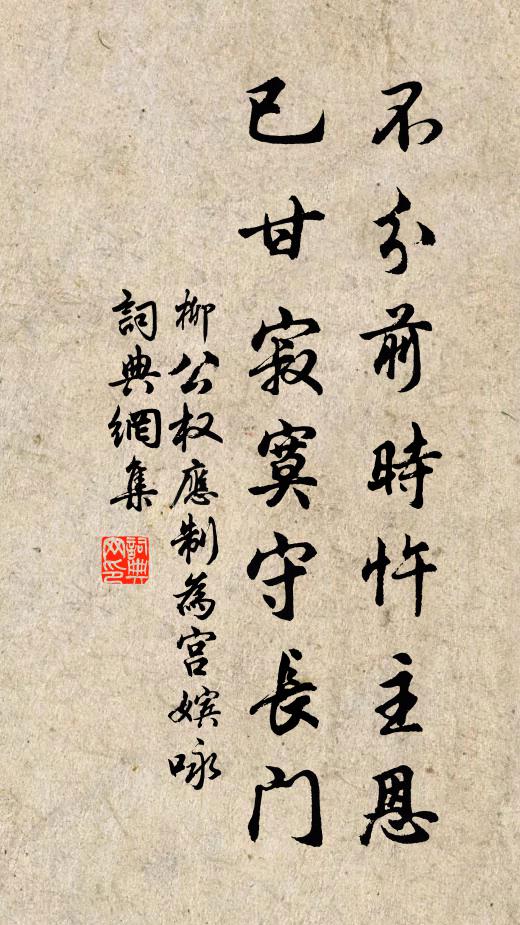 不分前時忤主恩
已甘寂寞守長門
柳公权應制為宮嬪咏
詞典網集
詞典網印